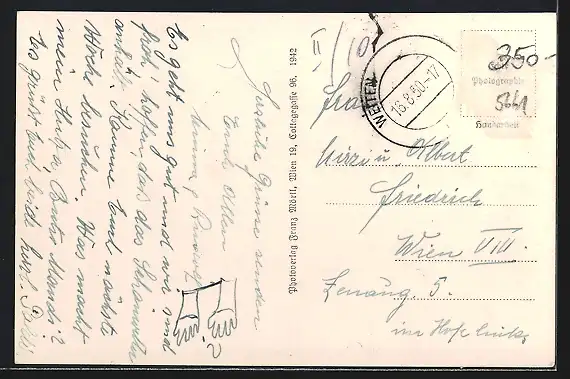 Es geht uns gut und wir sind
froh! hoffen, daß das Schönwetter
anhält. Komme Euch nächste
Woche besuchen. Was macht
mein Huba, Mandi?
Es grüßt Euch beide herzl.
Herzliche Grüße senden
Euch Allen
Minna
Photoverlag Franz Mörtl, Wien 19, Cottagegasse 96. 1942
II/10
WEITEN
18.8.50-17
350-
Photographie
5641
Handarbeit
Frau
Mirzi u. Albert
Friedrich
Wien VIII.
Lenaug. 5.
im Hofe links